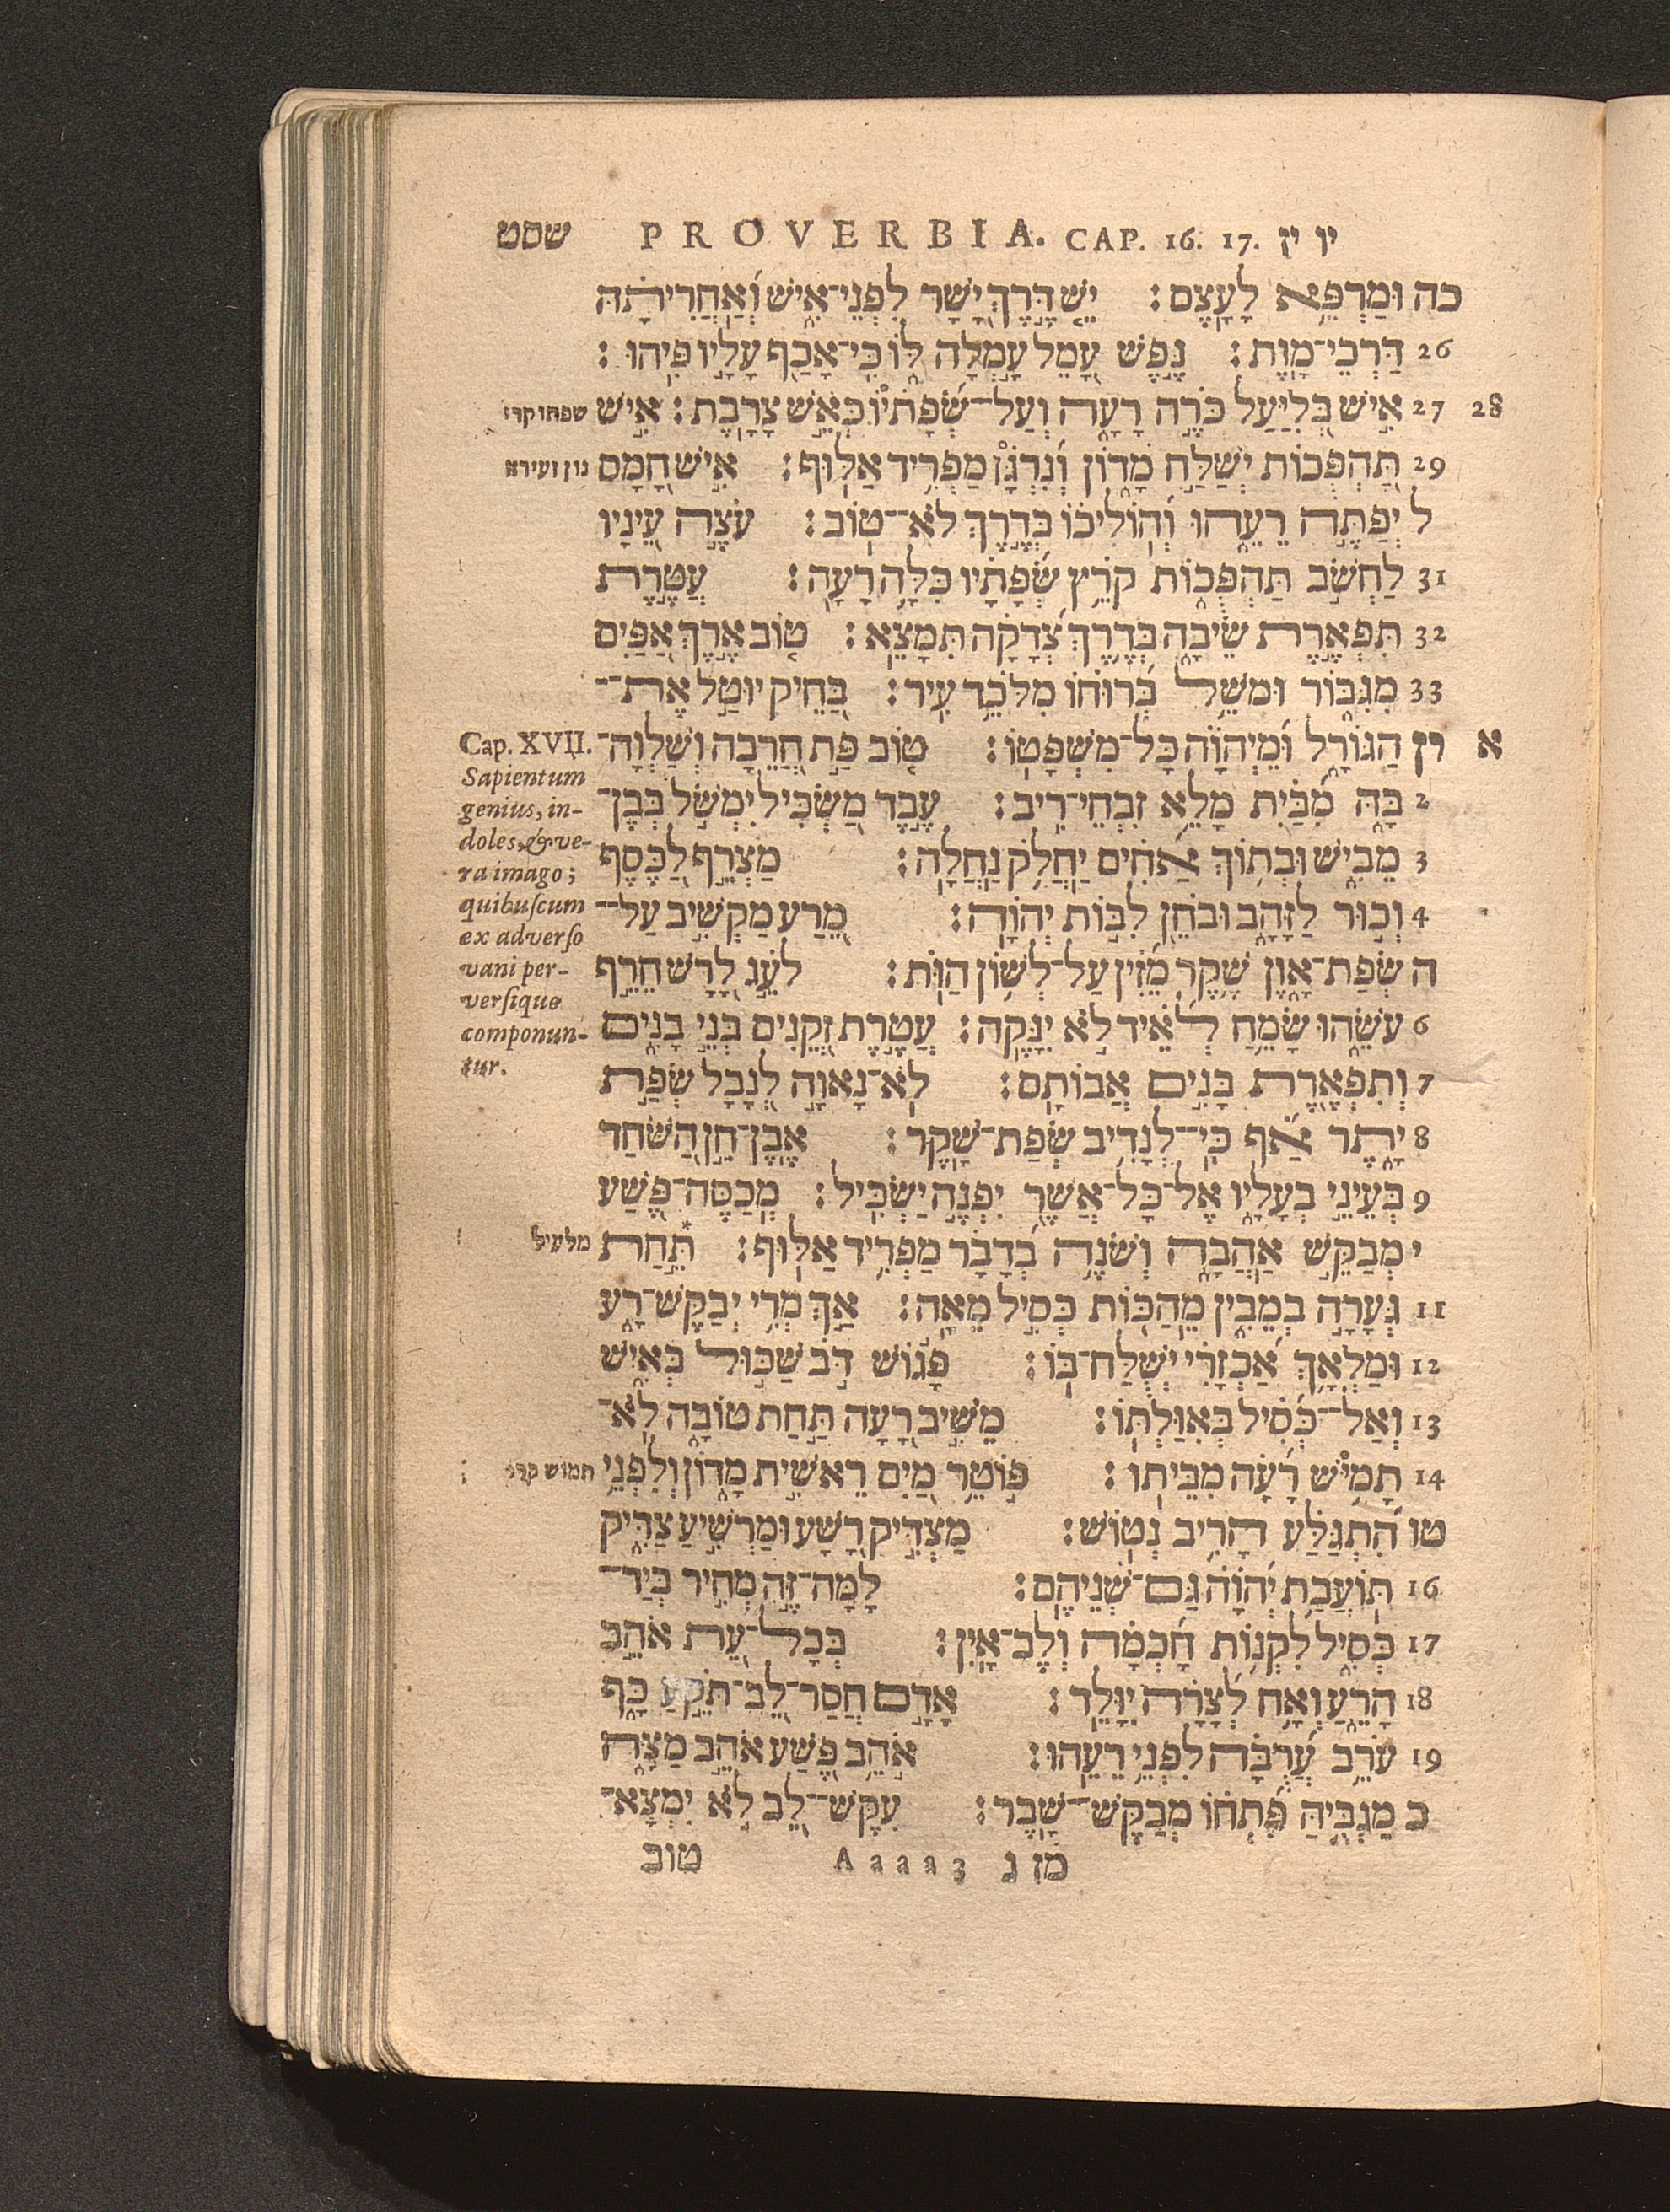 שסט PROVERBIA. CAP. 16. 17. יו יז
כה וּמַרְפֵּא לָעָצֶם׃ יֵשׁ דֶּרֶךְ יָשָׁר לִפְנֵי־אִישׁ וְאַחֲרִיתָהּ
26 דַּרְכֵי־מָוֶת׃ נֶפֶשׁ עָמֵל עָמְלָה לּוֹ כִּי־אָכַף עָלָיו פִּיהוּ׃
28 27 אִישׁ בְּלִיַּעַל כֹּרֶה רָעָה וְעַל־שְׂפָתָיו כְּאֵשׁ צָרָבֶת׃ אִישׁ שפתו קרי
29 תַּהְפֻּכוֹת יְשַׁלַּח מָדוֹן וְנִרְגָּן מַפְרִיד אַלּוּף׃ אִישׁ חָמָס נון זעירא
ל יְפַתֶּה רֵעֵהוּ וְהוֹלִיכוֹ בְּדֶרֶךְ לֹא־טוֹב׃ עֹצֶה עֵינָיו
31 לַחְשֹׁב תַּהְפֻּכוֹת קֹרֵץ שְׂפָתָיו כִּלָּה רָעָה׃ עֲטֶרֶת
32 תִּפְאֶרֶת שֵׂיבָה בְּדֶרֶךְ צְדָקָה תִּמָּצֵא׃ טוֹב אֶרֶךְ אַפַּיִם
33 מִגִּבּוֹר וּמֹשֵׁל בְּרוּחוֹ מִלֹּכֵד עִיר׃ בַּחֵיק יוּטַל אֶת־
א ויז הַגּוֹרָל וּמֵיְהוָה כָּל־מִשְׁפָּטוֹ׃ טוֹב פַּת חֲרֵבָה וְשַׁלְוָה־
2 בָהּ מִבַּיִת מָלֵא זִבְחֵי־רִיב׃ עֶבֶד מַשְׂכִּיל יִמְשֹׁל בְּבֶן־
3 מֵבִישׁ וּבְתוֹךְ אַחִים יַחֲלֹק נַחֲלָה׃ מַצְרֵף לַכֶּסֶף
4 וְכוּר לַזָּהָב וּבֹחֵן לִבּוֹת יְהוָה׃ מֵרַע מַקְשִׁיב עַל־
ה שְׂפַת־אָוֶן שֶׁקֶר מֵזִין עַל־לְשׁוֹן הַוֹּת׃ לֹעֵג לָרָשׁ חֵרֵף
6 עֹשֵׂהוּ שָׂמֵחַ לְאֵיד לֹא יִנָּקֶה׃ עֲטֶרֶת זְקֵנִים בְּנֵי בָנִים
7 וְתִפְאֶרֶת בָּנִים אֲבוֹתָם׃ לֹא־נָאוָה לְנָבָל שְׂפַת
8 יֶתֶר אַף כִּי־לְנָדִיב שְׂפַת־שָׁקֶר׃ אֶבֶן־חֵן הַשֹּׁחַד
9 בְּעֵינֵי בְעָלָיו אֶל־כָּל־אֲשֶׁר יִפְנֶה יַשְׂכִּיל׃ מְכַסֶּה־פֶּשַׁע
י מְבַקֵּשׁ אַהֲבָה וְשֹׁנֶה בְדָבָר מַפְרִיד אַלּוּף׃ *תֵּחַת מלעיל
11 גְּעָרָה בְמֵבִין מֵהַכּוֹת כְּסִיל מֵאָה׃ אַךְ מְרִי יְבַקֶּשׁ־רָע
12 וּמַלְאָךְ אַכְזָרִי יְשֻׁלַּח־בּוֹ׃ פָּגוֹשׁ דֹּב שַׁכּוּל בְּאִישׁ
13 וְאַל־כְּסִיל בְּאִוַּלְתּוֹ׃ מֵשִׁיב רָעָה תַּחַת טוֹבָה לֹא־
14 תָמִישׁ רָעָה מִבֵּיתוֹ׃ פּוֹטֵר מַיִם רֵאשִׁית מָדוֹן וְלִפְנֵי תמוש קרי
טו הִתְגַּלַּע הָרִיב נְטוֹשׁ׃ מַצְדִּיק רָשָׁע וּמַרְשִׁיעַ צַדִּיק
16 תּוֹעֲבַת יְהוָה גַּם־שְׁנֵיהֶם׃ לָמָּה־זֶּה מְחִיר בְּיַד־
17 כְּסִיל לִקְנוֹת חָכְמָה וְלֶב־אָיִן׃ בְּכָל־עֵת אֹהֵב
18 הָרֵעַ וְאָח לְצָרָה יִוָּלֵד׃ אָדָם חֲסַר־לֵב תֹּקֵעַ כָּף
19 עֹרֵב עֲרֻבָּה לִפְנֵי רֵעֵהוּ׃ אֹהֵב פֶּשַׁע אֹהֵב מַצָּה
כ מַגְבִּיהַּ פִּתְחוֹ מְבַקֶּשׁ־שָׁבֶר׃ עִקֶּשׁ־לֵב לֹא יִמְצָא־
מז ג Aaaa3 טוב
Cap. XVII.
Sapientum
genius, in-
doles, & ve-
ra imago;
quibuscum
ex adverso
vani per-
versique
componun-
tur.